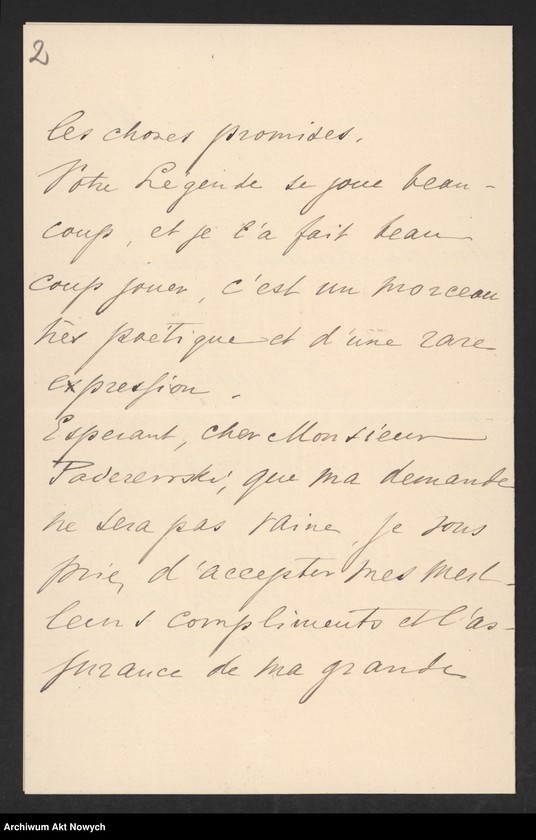 2
les choses promises.
Votre Légende se joue beau-
coup, et je l'a fait beau
coup jouer, c'est un morceau
très poétique et d'une rare
expression.
Esperant, cher Monsieur
Paderewski, que ma demande
ne sera pas vaine, je vous
prie, d'accepter mes meil-
leurs compliments et l'as-
surance de ma grande
Archiwum Akt Nowych